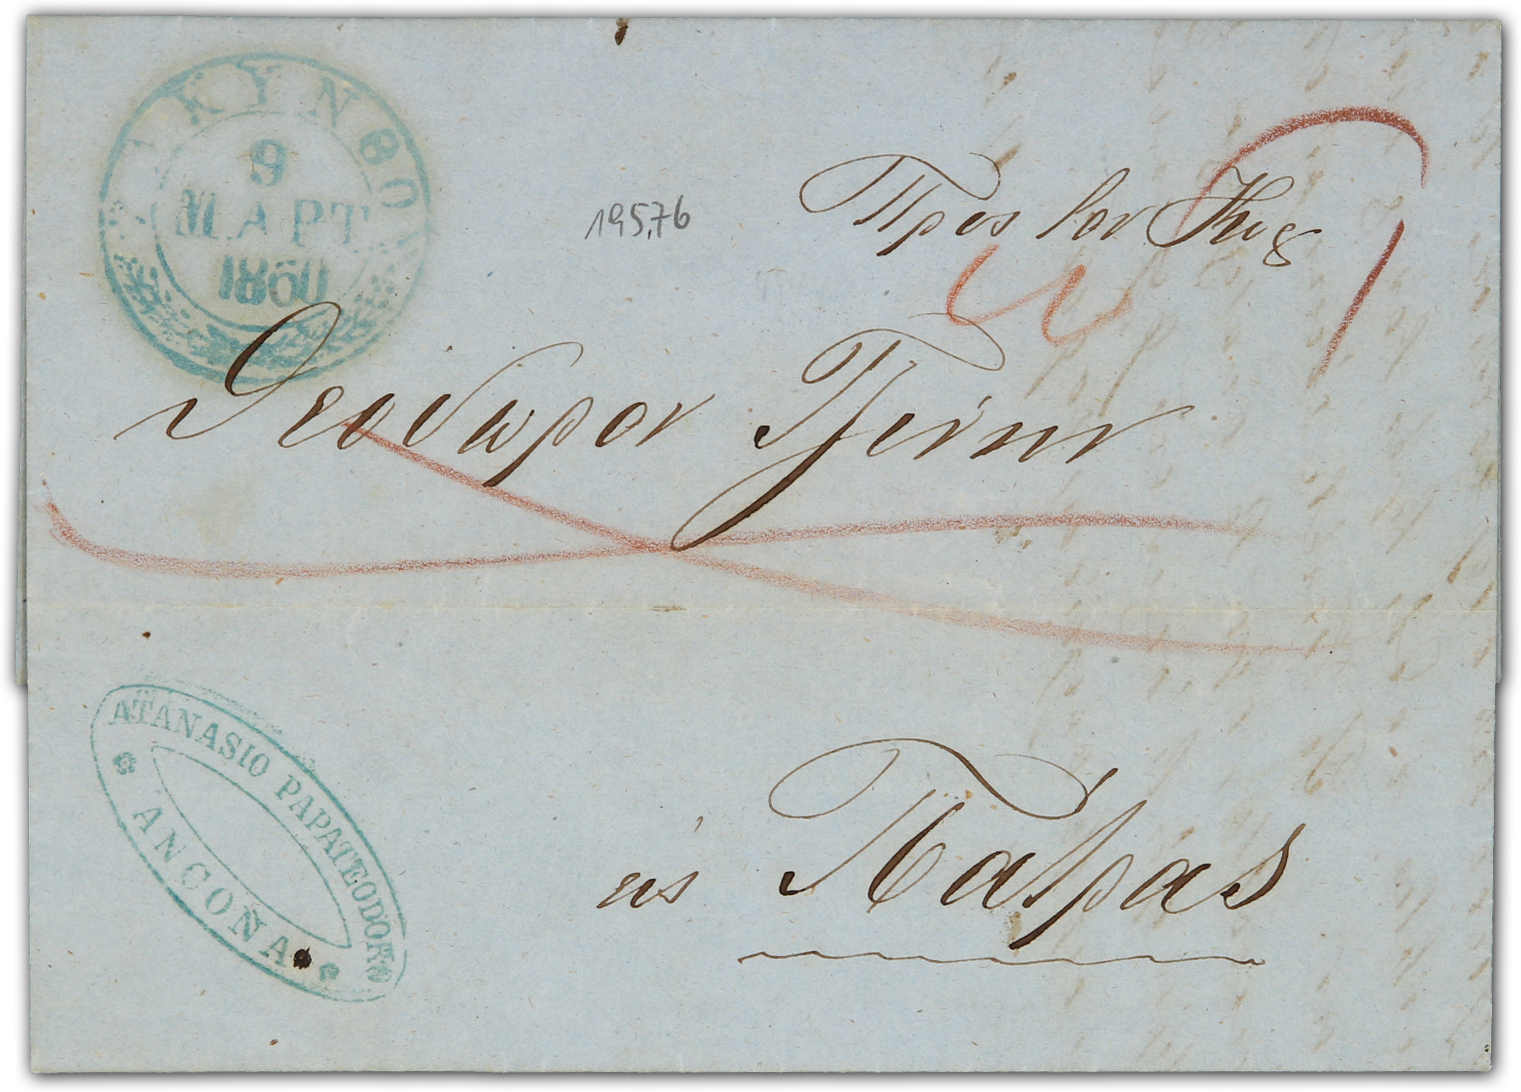 ΖΑΚΥΝΘΟΣ
9
ΜΑΡΤ
1860
19576
Προς τον Κυρ
Θεοδωρον Τζίνην
εις Πατρας
ATANASIO PAPATEODORO
ANCONA